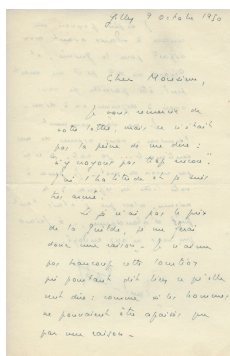 Jolly 9 Octobre 1950
Cher Monsieur,
Je vous remercie de
votre lettre, mais ce n'était
pas la peine de me dire :
n'y voyant pas
j'ai l'habitude et je suis
très
Si je n'ai pas le prix
de la Guilde, je me ferai
donc une raison. Je n'aime
pas beaucoup cette
qui pourtant dit bien ce qu'elle
veut dire ; comme si les hommes
ne pouvaient être apaisés que
par une raison.